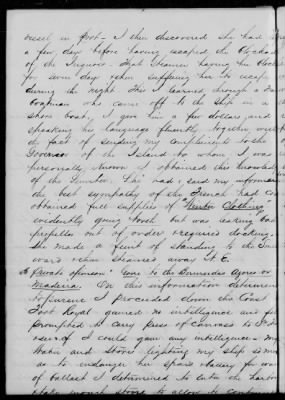 vessel in port - I then discovered she had
a few days before having escaped the Blockade
of the Iroquois. That Steamer having her Blockaded
for seven days when suffering her to escape
during the night This I learned through a
Boatman who came off to the ship in a
shore boat, I gave him a few dollars, and
speaking his language fluently together with
the fact of sending my compliments to the
Governor of the Island to whom I was
personally known I obtained this knowledge
of the Sumter. She had, said my informant
the best sympathy of the French had
obtained full supplies of "Winter Clothing"
evidently going North but was leaking had
propeller out of order & required docking.
She made a feint of standing to the
ward when steamed away N.E.
His private opinion "Gone to the Bermudas Azores or
Madeira. On this information determined
to pursue I proceeded down the Coast
Port Royal gained no intelligence and
prompted to carry press of canvass to St.
if I could gain any intelligence - my
Water and Stores lighting my ship so much
as to endanger her spars & battery for want
of ballast I determined to enter the harbor